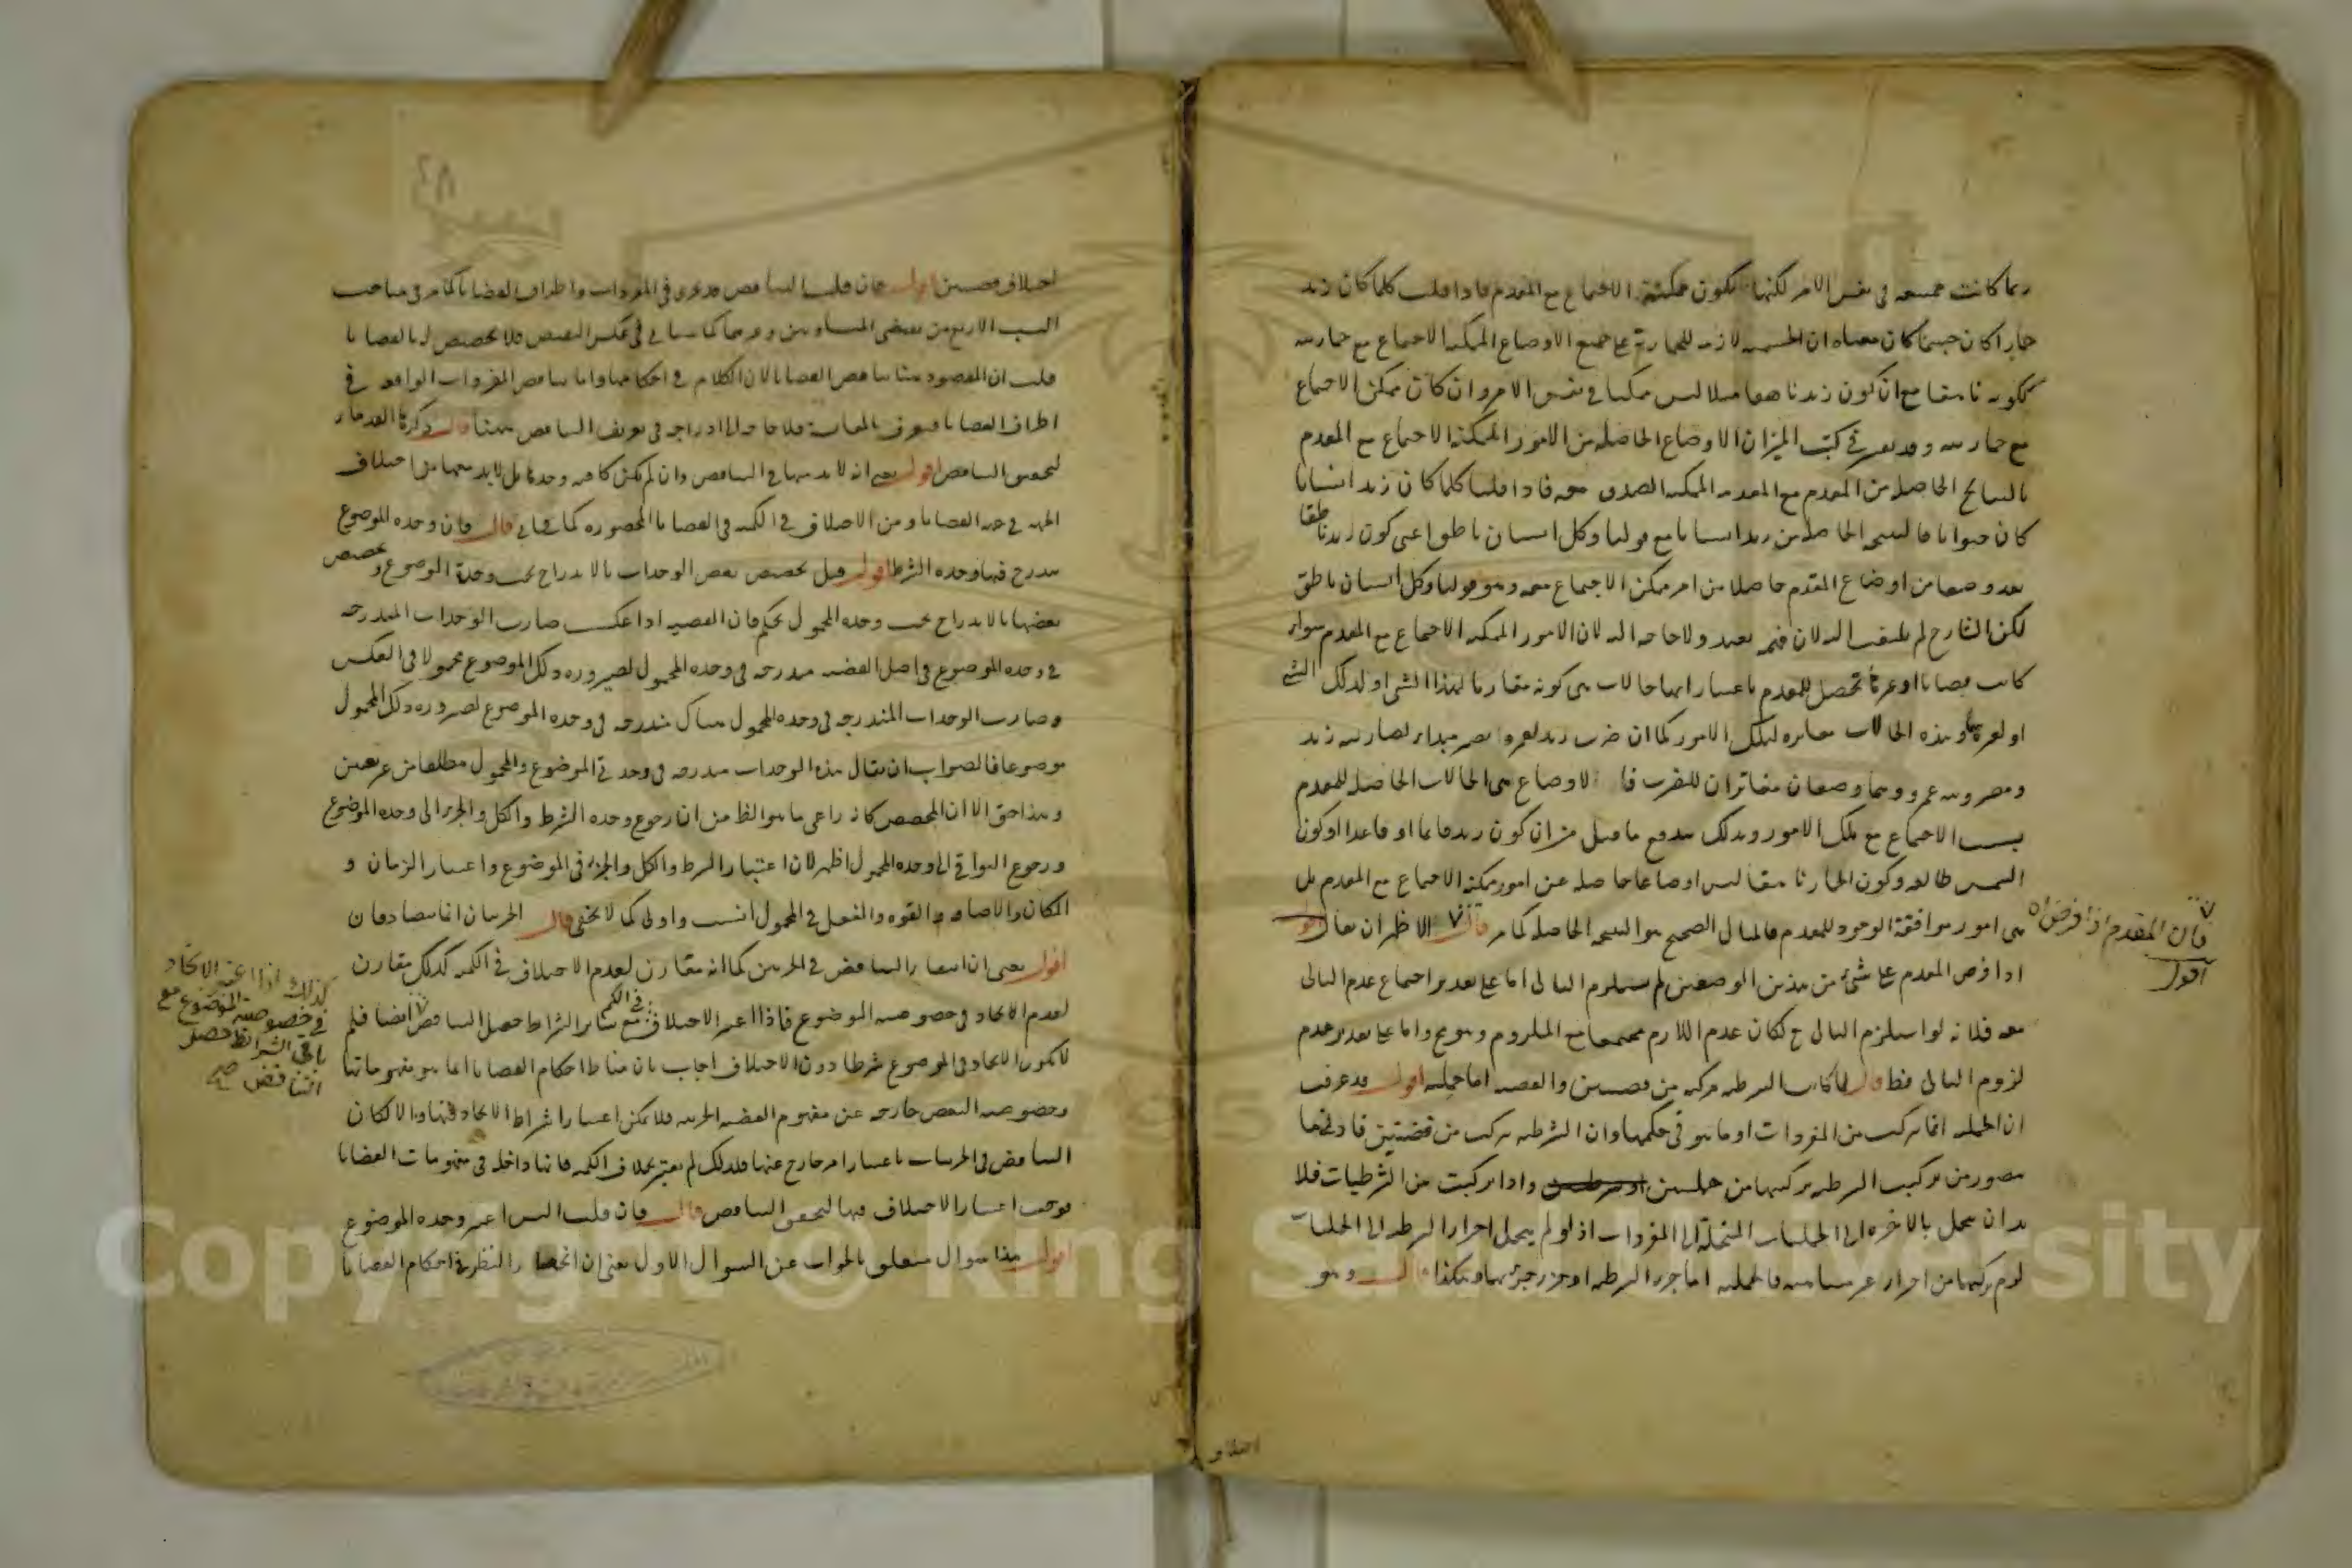 ربما كانت ممتنعة في نفس الامر لكنها تكون ممكنة الاجتماع مع المقدم فاذا قلت كلما كان زيد
حمارا كان جسما كان معناه ان الجسمية لازمة للحمارية على جميع الاوضاع الممكنة الاجتماع مع حماريته
ككونه ناهقا مع ان كون زيد ناهقا مثلا ليس ممكنا في نفس الامر وان كان ممكن الاجتماع
مع حماريته وقد يفسر في كتب الميزان الاوضاع الحاصلة من الامور الممكنة الاجتماع مع المقدم
بالنتائج الحاصلة من المقدم مع المقدمة الممكنة الصدق معه فاذا قلنا كلما كان زيد انسانا
كان حيوانا فالنتيجة الحاصلة من زيد انسان مع قولنا وكل انسان ناطق اعني كون زيد ناطقا
يعد وضعا من اوضاع المقدم حاصلا من امر ممكن الاجتماع معه وهو قولنا وكل انسان ناطق
لكن الشارح لم يلتفت اليه لان فيه بعد ولا حاجة اليه لان الامور الممكنة الاجتماع مع المقدم سواء
كانت قضايا او غيرها تحصل للمقدم باعتبارها حالات هي كونه مقارنا لهذا الشي او لذلك الشي
او لغيرها وهذه الحالات مغايرة لتلك الامور كما ان ضرب زيد لعمرو يصير مبداء لضاربية زيد
ومضروبية عمرو وهما وصفان مغايران للضرب فالاوضاع هي الحالات الحاصلة للمقدم
بسبب الاجتماع مع تلك الامور وبذلك يندفع ما قيل من ان كون زيد قائما او قاعدا او كون
الشمس طالعة وكون الحمار ناهقا ليس اوضاعا حاصلة عن امور ممكنة الاجتماع مع المقدم بل
هي امور موافقة الوجود للمقدم فالمثال الصحيح هو النتيجة الحاصلة كما مر قال الاظهر ان يقال
فان المقدم اذا فرض اه
اقول
اذا فرض المقدم على شئ من هذين الوضعين لم يستلزم التالي اما على تقدير اجتماع عدم التالي
معه فلانه لو استلزم التالي ح لكان عدم اللازم مجتمعا مع الملزوم وهو مح واما على تقدير عدم
لزوم التالي فظ قال لما كانت الشرطية مركبة من قضيتين والقضية اما حملية اقول قد عرفت
ان الحملية انما تركب من المفردات او ما هو في حكمها وان الشرطية تركب من قضيتين فادنى ما
يتصور من تركيب الشرطية تركيبها من حمليتين واذا تركبت من الشرطيات فلا
بد ان تنحل بالاخرة الى الحمليات المنحلة الى المفردات اذ لو لم ينحل اجزاء الشرطية الى الحمليات
لزم تركبها من اجزاء غير متناهية فالحملية اما جزء الشرطية او جزء جزئها وهكذا قال وهو
اختلاف
اختلاف قضيتين اقول فان قلت التناقض قد يجري في المفردات واطراف القضايا كما مر في مباحث
النسب الاربع من نقيضي المتساويين وغيرهما كما سياتي في عكس النقيض فلا تخصيص له بالقضايا
قلت ان المقصود هنا تناقض القضايا لان الكلام في احكامها واما تناقض المفردات الواقعة في
اطراف القضايا فيعرف بالمقايسة فلا حاجة الى ادراجه في تعريف التناقض ههنا قال ذكرها القدماء
لتحقق التناقض اقول يعني انه لا بد منها في التناقض وان لم تكن كافية وحدها بل لا بد معها من اختلاف
الجهة في هذه القضايا ومن الاختلاف في الكمية في القضايا المحصورة كما سياتي قال فان وحدة الموضوع
يندرج فيها وحدة الشرط اقول قيل تخصيص بعض الوحدات بالاندراج تحت وحدة الموضوع وتخصيص
بعضها بالاندراج تحت وحدة المحمول تحكم فان القضية اذا عكست صارت الوحدات المندرجة
في وحدة الموضوع في اصل القضية مندرجة في وحدة المحمول لصيرورة ذلك الموضوع محمولا في العكس
وصارت الوحدات المندرجة في وحدة المحمول هناك مندرجة في وحدة الموضوع لصيرورة ذلك المحمول
موضوعا فالصواب ان يقال هذه الوحدات مندرجة في وحدتي الموضوع والمحمول مطلقا من غير تعيين
وهذا حق الا ان المخصص كانه راعى ما هو الظ من ان رجوع وحدة الشرط والكل والجزء الى وحدة الموضوع
ورجوع البواقي الى وحدة المحمول اظهر لان اعتبار الشرط والكل والجزء في الموضوع واعتبار الزمان و
المكان والاضافة والقوة والفعل في المحمول انسب واولى كما لا يخفى قال الجزئيتان انما يتصادقان
اقول يعني ان انتفاء التناقض في الجزئيتين كما انه مقارن لعدم الاختلاف في الكمية كذلك مقارن
لعدم الاتحاد في خصوصية الموضوع فاذا اعتبر الاختلاف في الكم مع سائر الشرائط حصل التناقض ايضا فلم
كذلك اذا اعتبر الاتحاد
في خصوصية الموضوع مع
باقي الشرائط حصل
التناقض صح
لا يكون الاتحاد في الموضوع شرطا دون الاختلاف اجاب بان مناط احكام القضايا انما هو مفهوماتها
وخصوصية البعض خارجة عن مفهوم القضية الجزئية فلا يمكن اعتبار اشتراط الاتحاد فيها والا لكان
التناقض في الجزئيات باعتبار امر خارج عنها فلذلك لم يعتبر بخلاف الكمية فانها داخلة في مفهومات القضايا
فوجب اعتبار الاختلاف فيها لتحقق التناقض قال فان قلت اليس اعتبر وحدة الموضوع
اقول هذا سوال متعلق بالجواب عن السوال الاول يعني ان انحصار النظر في احكام القضايا